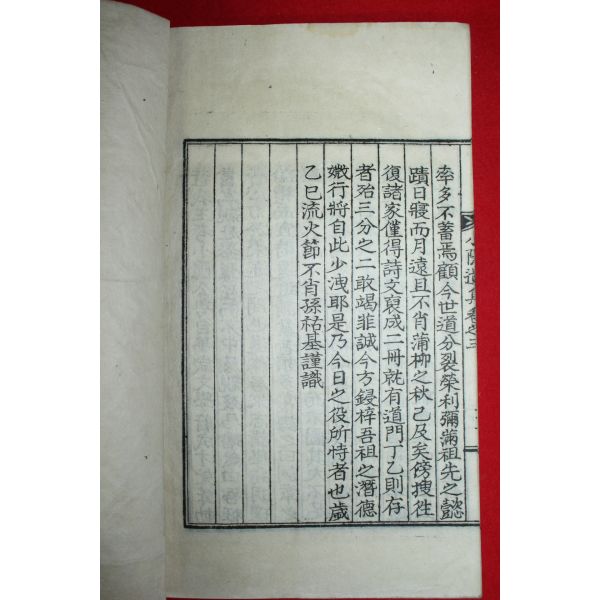 率多不蓄焉顧今世道分裂榮利彌滿祖先之懿
蹟日寢而月遠且不肖蒲柳之秋已及矣傍搜徃
復諸家僅得詩文裒成二冊就有道門丁乙則存
者殆三分之二敢竭菲誠今方鋟梓吾祖之潛德
媺行將自此少洩耶是乃今日之役所恃者也歲
乙巳流火節不肖孫祜基謹識
遺集卷之三